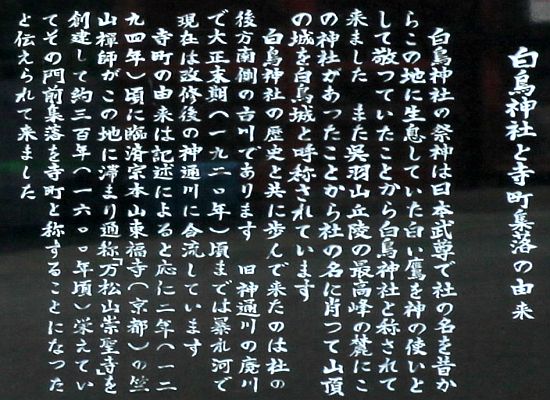 白鳥神社と寺町集落の由来
白鳥神社の祭神は日本武尊で社の名を昔か
らこの地に生息していた白い鷹を神の使いと
して敬っていたことから白鳥神社と称されて
来ました また呉羽山丘陵の最高峰の麓にこ
の神社があったことから社の名に肖って山頂
の城を白鳥城と呼称されています
白鳥神社の歴史と共に歩んで来たのは社の
後方南側の古川であります 旧神通川の廃川
で大正末期(一九二〇年)頃までは暴れ河で
現在は改修後の神通川に合流しています
寺町の由来は記述によると応に二年(一二
九四年)頃に臨済宗本山東福寺(京都)の竺
山禅師がこの地に滞まり通称「万松山崇聖寺」を
創建して約三百年(一六〇〇年頃)栄えてい
てその門前集落を寺町と称することになった
と伝えられて来ました